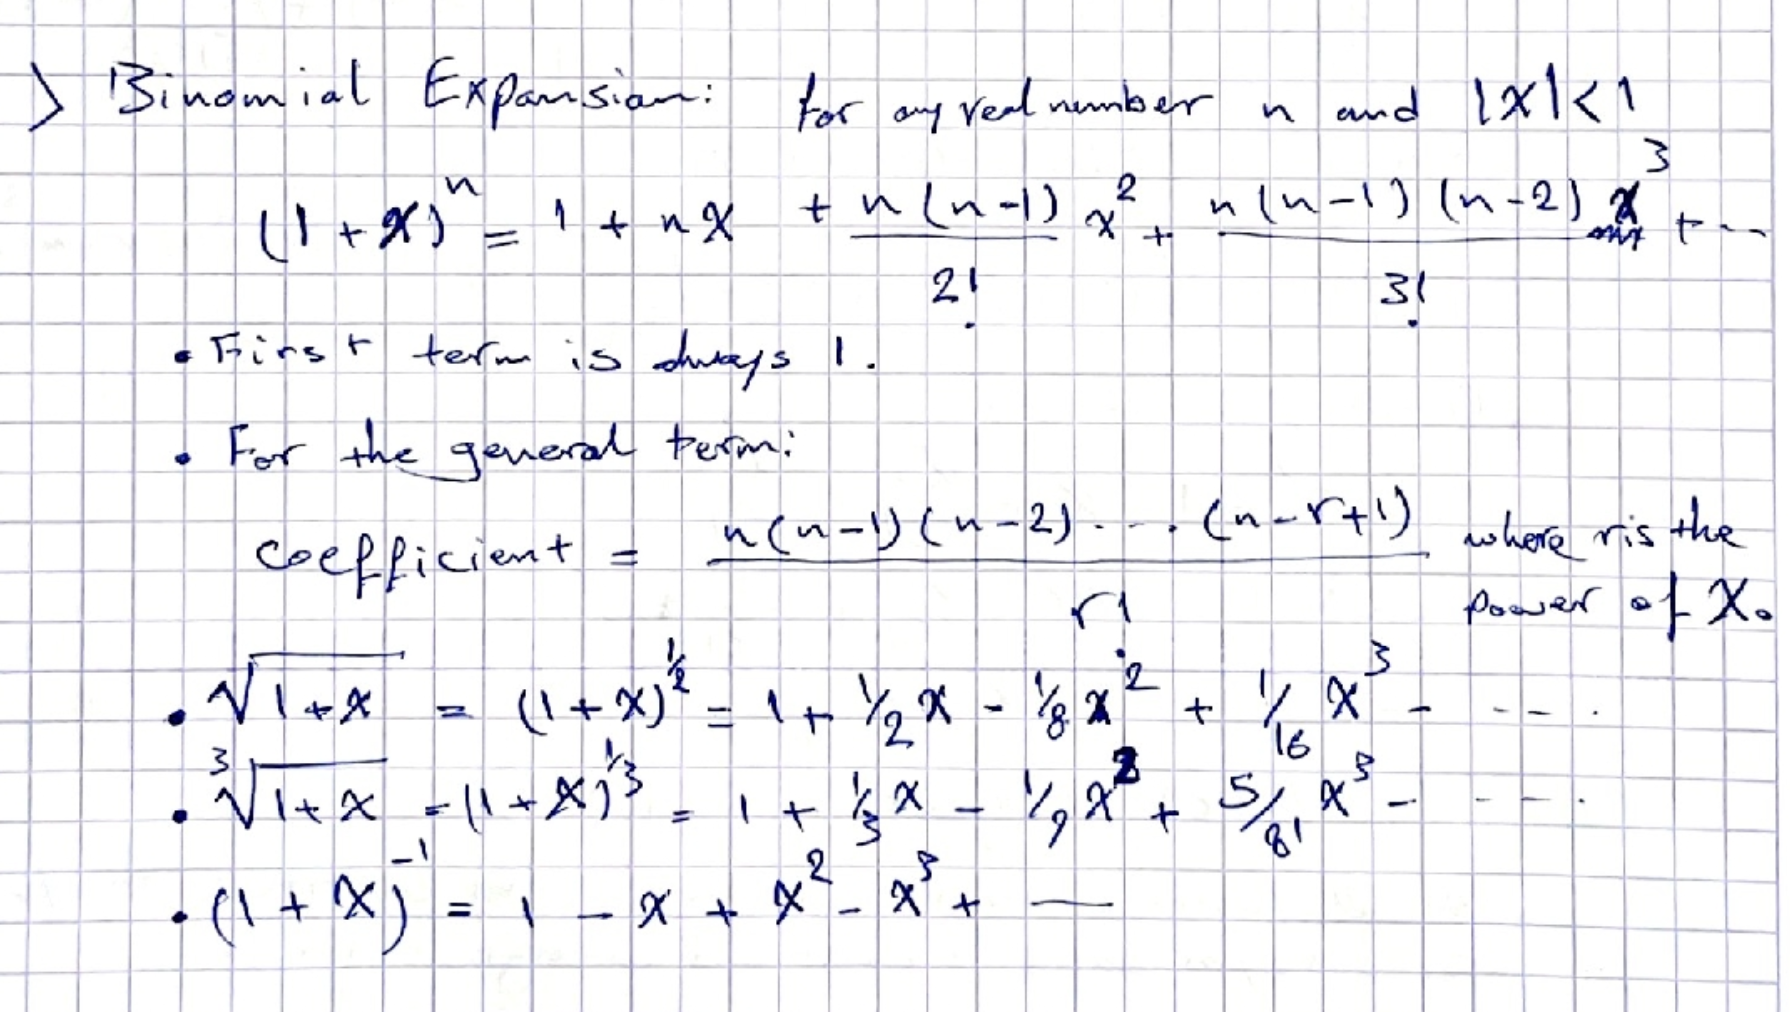 > Binomial Expansion: for any real number n and |x|<1
(1+x)^n = 1 + nx + n(n-1)/2! x^2 + n(n-1)(n-2)/3! x^3 + ...
• First term is always 1.
• For the general term:
coefficient = n(n-1)(n-2)....(n-r+1)/r! where r is the power of x.
• √(1+x) = (1+x)^(1/2) = 1 + 1/2 x - 1/8 x^2 + 1/16 x^3 - ....
• ∛(1+x) = (1+x)^(1/3) = 1 + 1/3 x - 1/9 x^2 + 5/81 x^3 - ....
• (1+x)^-1 = 1 - x + x^2 - x^3 + —